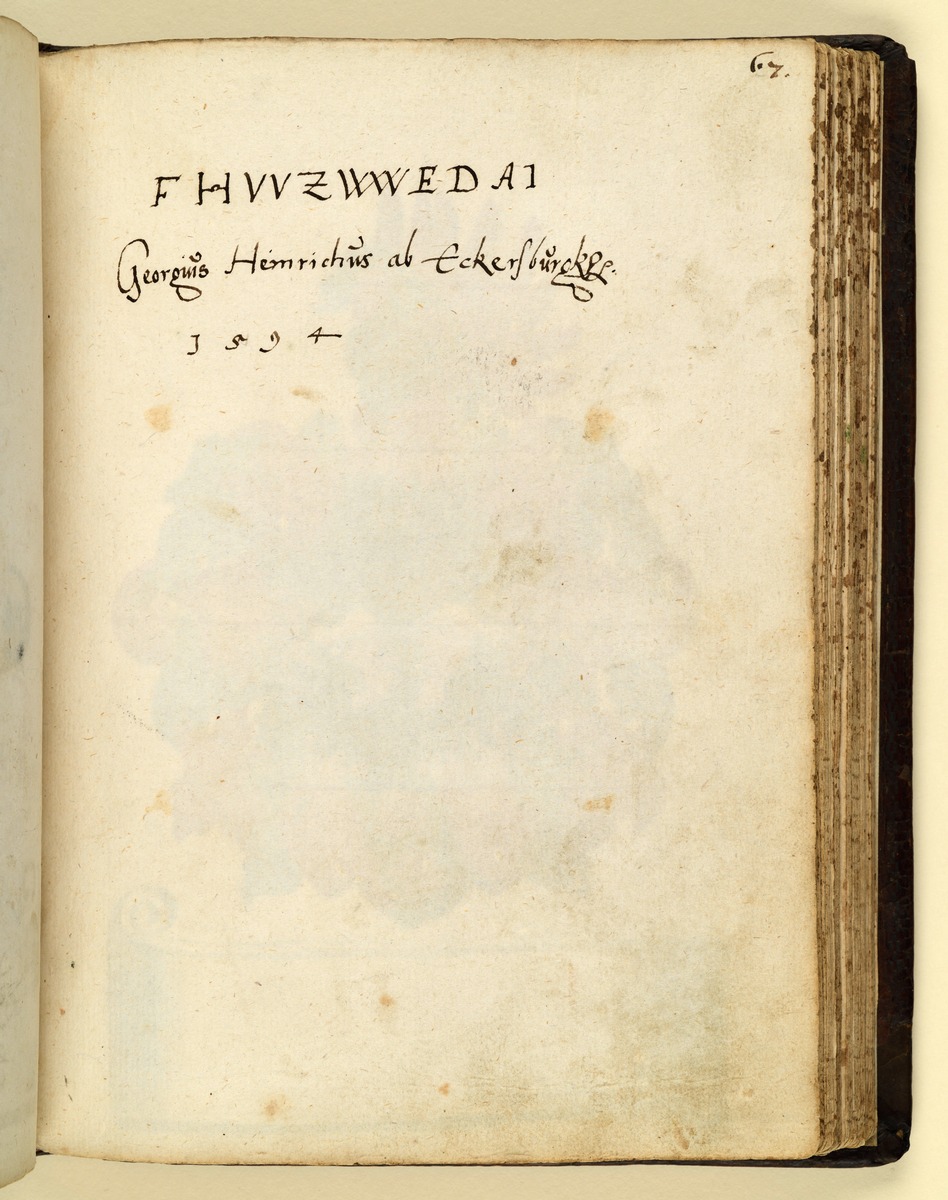 67.
F H W Z W W E D A I
Georgius Heinrichus ab Eckersburgk
1594